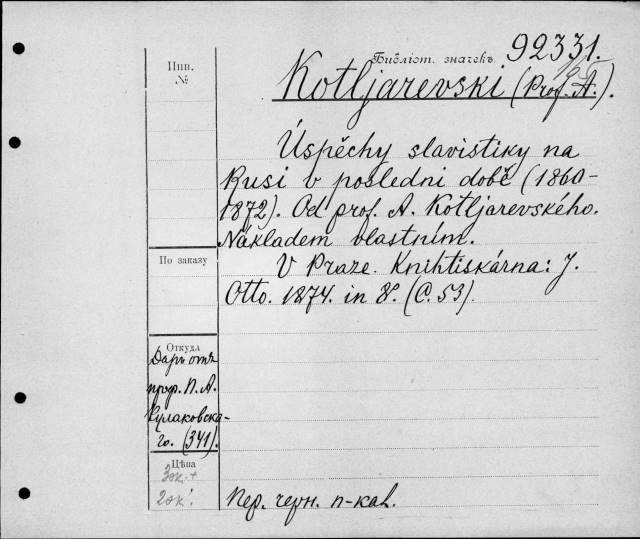 Библіот. значекъ 92331.
Инв.
№
Kotljarevski (Prof. A.).
Úspěchy slavistiky na
Rusi v poslední době (1860-
1872). Od prof. A. Kotljarevského.
Nákladem vlastním.
По заказу
V Praze. Knihtiskárna: J.
Otto. 1874. in 8°. (C. 53).
Откуда
Даръ отъ
проф. П. А.
Кулаковска-
го. (341).
Цѣна
20к.
Пер. черн. п-кал.